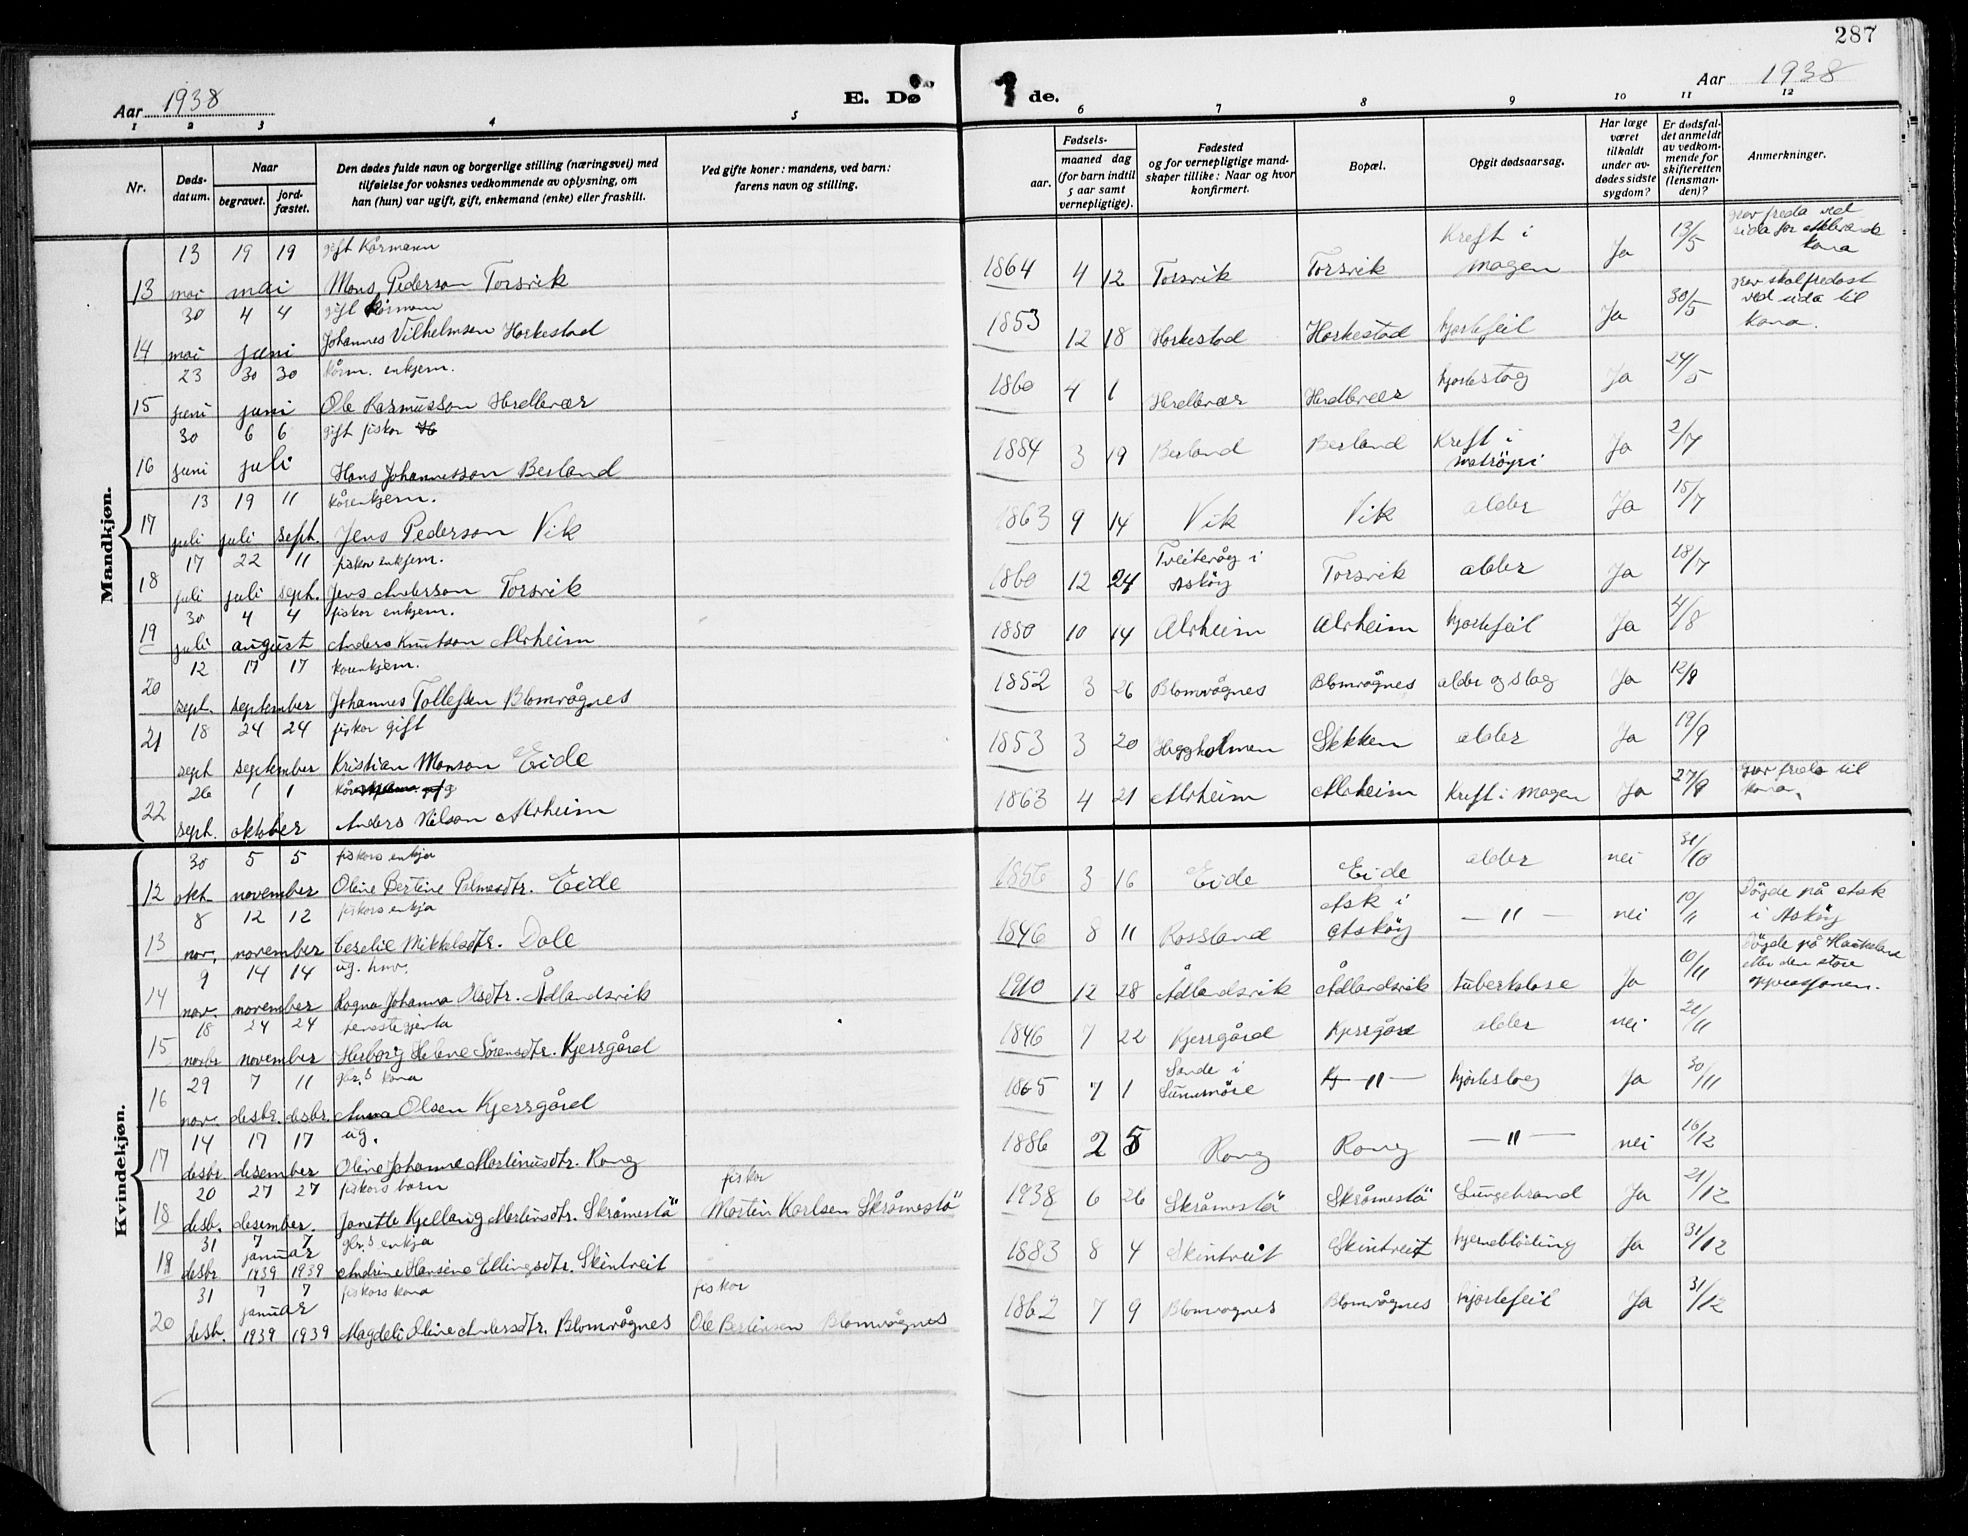 287
Aar 1938
E. Dø
de.
Aar 1938
1 2 3 4 5 6 7 8 9 10 11 12
Nr.
Døds-
datum.
Naar
begravet.
jord-
fæstet.
Den dødes fulde navn og borgerlige stilling (næringsvei) med
tilføielse for voksnes vedkommende av oplysning, om
han (hun) var ugift, gift, enkemand (enke) eller fraskilt.
Ved gifte koner: mandens, ved barn:
farens navn og stilling.
Fødsels-
aar.
maaned dag
(for barn indtil
5 aar samt
vernepligtige).
Fødested
og for vernepligtige mand-
skaper tillike: Naar og hvor
konfirmert.
Bopæl.
Opgit dødsaarsag.
Har læge
været
tilkaldt
under av-
dødes sidste
sygdom?
Er dødsfal-
det anmeldt
av vedkom-
mende for
skifteretten
(lensman-
den)?
Anmerkninger.
Mandkjøn.
13 19 19 gift Kårmann
13 mai mai Mons Pederson Torsvik 1864 4 12 Torsvik Torsvik Kreft i
magen Ja 13/5 grav freda ved
sida for
kona
30 4 4 gift kårmann
14 mai juni Johannes Vilhelmsen Horkestad 1853 12 18 Horkestad Horkestad hjortefeil Ja 30/5 grav skal fredast
ved sida til
kona.
23 30 30 kårm. enkjem.
15 juni juni Ole Rasmusson Herdlevær 1860 4 1 Herdlevær Herdlevær hjorteslag Ja 24/5
30 6 6 gift fiskar
16 juni juli Hans Johannesson Berland 1884 3 19 Berland Berland Kreft i
matröyri Ja 2/7
13 19 11 kårenkjem.
17 juli juli sept. Jens Pederson Vik 1863 9 14 Vik Vik alder Ja 15/7
17 22 11 fiskar enkjem.
18 juli juli sept. Jens Anderson Torsvik 1860 12 24 Tveitevåg i
Asköy Torsvik alder Ja 18/7
30 4 4 fiskar enkjem.
19 juli august Anders Knutson Alrheim 1850 10 14 Alrheim Alrheim hjortefeil Ja 4/8
12 17 17 kårenkjem.
20 sept. september Johannes Tollefsen Blomvågnes 1852 3 26 Blomvågnes Blomvågnes alder og slag Ja 12/9
18 24 24 fiskar gift
21 sept september Kristian Monson Eide 1853 3 20 Heggholmen Skkken alder Ja 19/9
26 1 1
22 sept. oktober Anders Nilson Alrheim 1863 4 21 Alrheim Alrheim Kreft i magen Ja 27/9 grav freda til
kona.
Kvindekjøn.
30 5 5 fiskars enkja
12 okt. november Oline Bertine Palmesdtr. Eide 1856 3 16 Eide Eide alder nei 31/10
8 12 12 fiskars enkja
13 nov. november Ceselie Mikkelsdtr. Dale 1846 8 11 Rossland Ask i
Asköy — " — nei 10/11 Döyde på Ask
i Asköy
9 14 14 ug. hnv.
14 nov. november Ragna Johanna Olsdtr. Ådlandsvik 1910 12 28 Ådlandsvik Ådlandsvik tuberkulose Ja 10/11 Döyde på Haukeland
etter den store
operasjonen.
18 24 24 tenestegjenta
15 novbr november Herborg Helene Sörensdtr. Kjerrgård 1846 7 22 Kjerrgård Kjerrgård alder nei 21/11
29 7 11 gbr.s kona
16 nov. desbr. desbr. Anna Olsen Kjerrgård 1865 7 1 Sande i
Sunnmöre — " — hjarteslag Ja 30/11
14 17 17 ug.
17 desbr desember Oline Johanne Martinusdtr. Rong 1886 2 5 Rong Rong — " — nei 16/12
20 27 27 fiskars barn fiskar
18 desb. desember. Janette Kjellaug Martinsdtr. Skråmestö Martin Karlsen Skråmestö 1938 6 26 Skråmestö Skråmestö Lungebrand Ja 21/12
31 7 7 gbr.s enkja
19 desbr januar 1939 1939 Andrine Hansine Ellingsdtr. Skintveit 1883 8 4 Skintveit Skintveit hjerneblöding Ja 31/12
31 7 7 fiskars kona fiskar
20 desb. januar 1939 1939 Magdeli Oline Andersdtr. Blomvågnes Ole Bertinsen Blomvågnes 1862 7 9 Blomvagnes Blomvågnes hjortefeil Ja 31/12